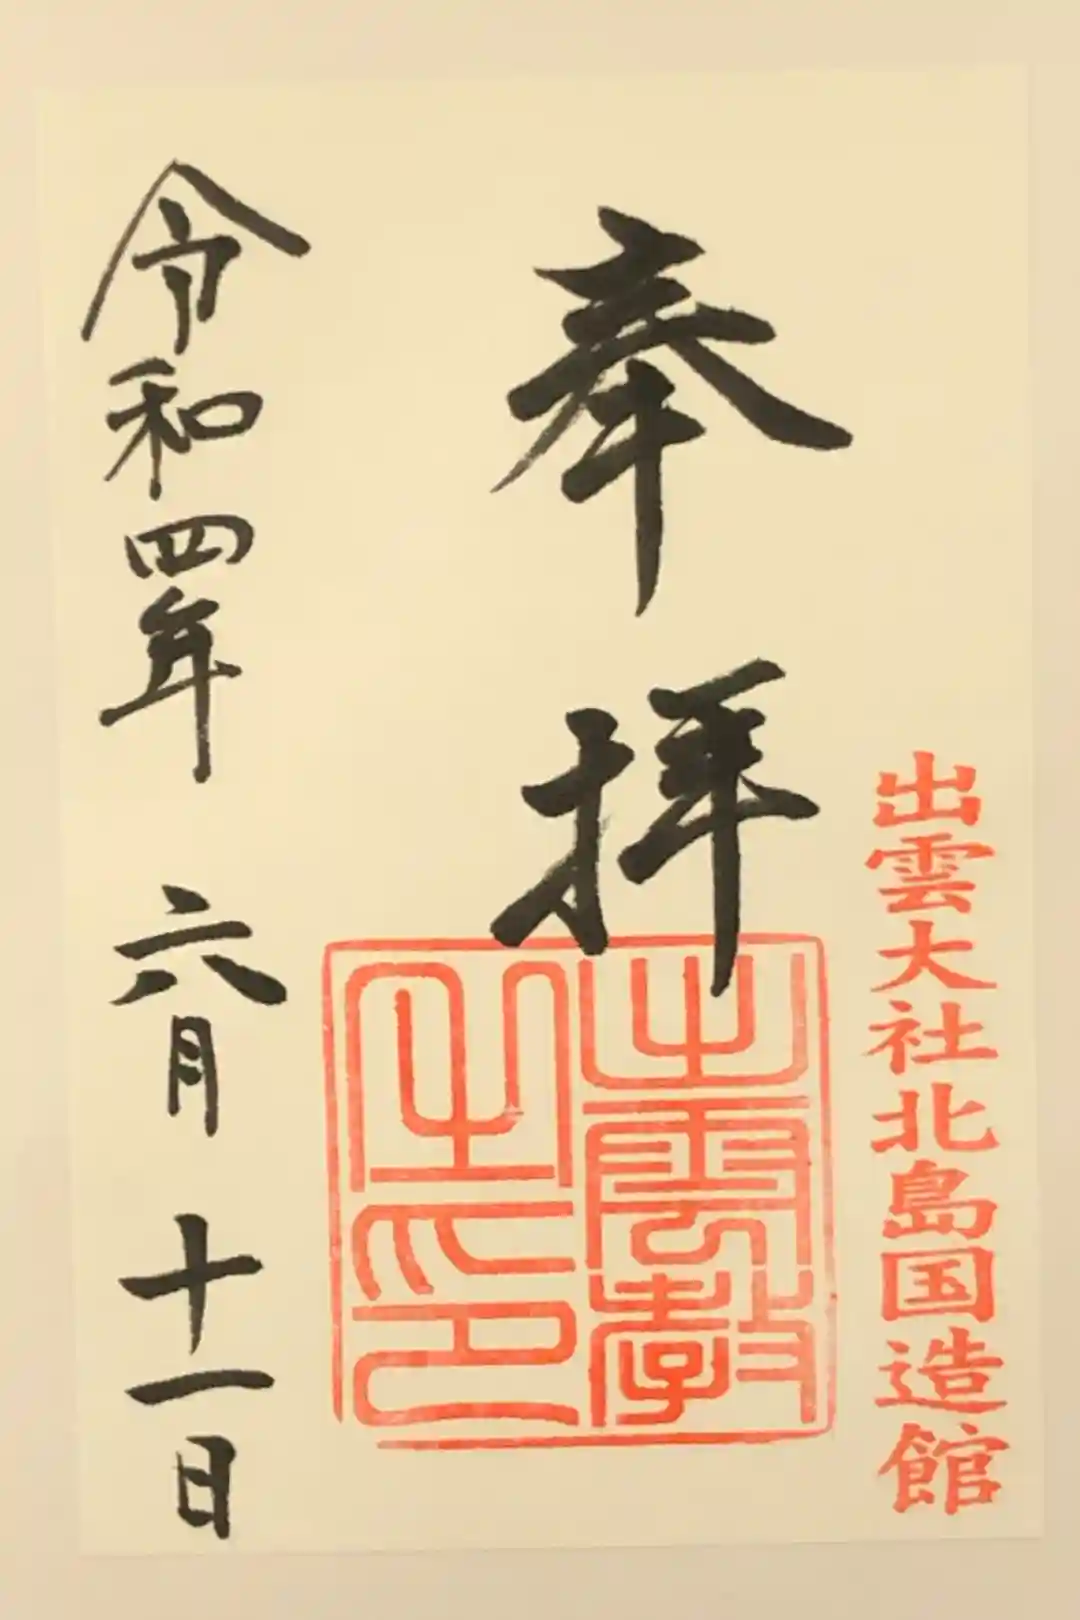 出雲大社北島国造館
奉拝
出雲教
之印
令和四年 六月 十一日